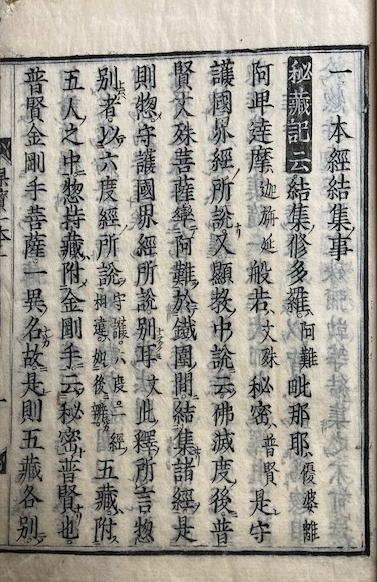 一 本經結集事
秘藏記云結集修多羅阿難毗那耶優婆離
阿毗達摩迦旃延般若文殊秘密普賢是守
護國界經所說又顯教中說云佛滅度後普
賢文殊菩薩率阿難於鐵圍間結集諸經是
則惣守護國界經所說別耳文此釋所言惣
別者以六度經所說守護六度二經相違如後辨五藏附
五人之中惣持藏附金剛手云秘密普賢也
普賢金剛手菩薩一異名故是則五藏各別